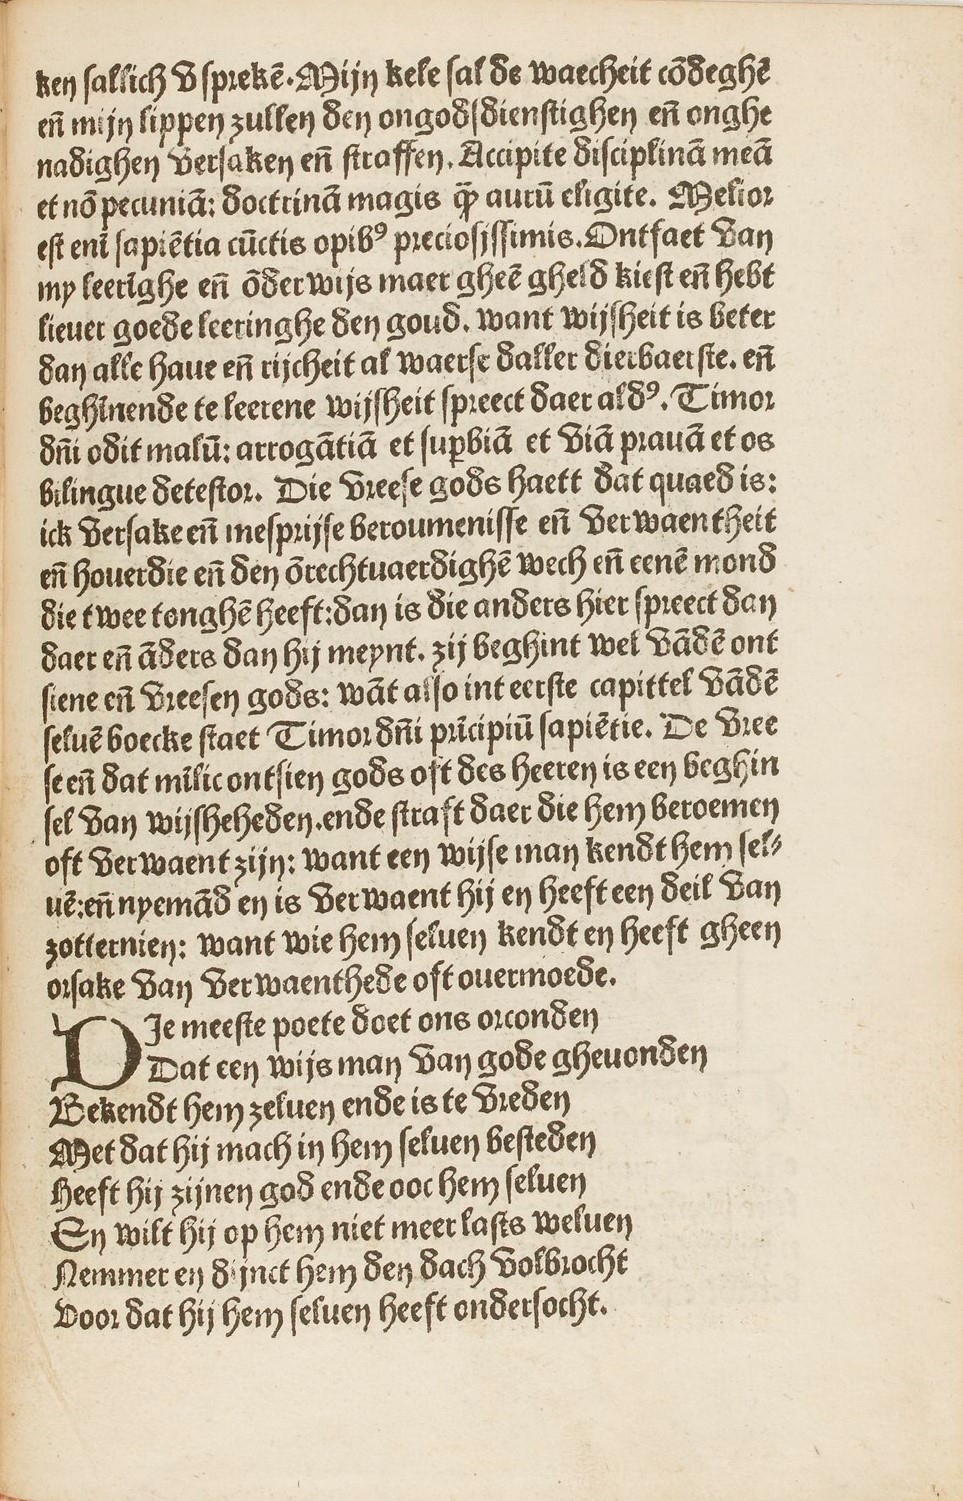 ken sallich v sprekē. Mijn kele sal de waecheit cōdeghē
eñ mijn lippen zullen den ongodsdienstighen eñ onghe
nadighen versaken eñ straffen. Accipite disciplinā meā
et nō pecuniā: doctrinā magis q̄ȝ aurū eligite. Melior
est enī sapiētia cūctis opibꝰ preciosissimis. Ontfaet van
my leerīghe eñ ōderwijs maer gheē gheld kiest eñ hebt
liever goede leeringhe den goud. want wijsheit is beter
dan alle have eñ rijcheit al waerse daller dierbaerste. eñ
beghīnende te leerene wijsheit spreect daer aldꝰ. Timor
dñi odit malū: arrogātiā et suꝑbiā et viā pravā et os
bilingue detestor. Die vreese gods haett dat quaed is:
ick versake eñ mesprijse beroumenisse eñ verwaentheit
eñ hoverdie eñ den ōrechtvaerdighē wech eñ eenē mond
die twee tonghē heeft: dan is die anders hier spreect dan
daer eñ āders dan hij meynt. zij beghint wel vādē ont
siene eñ vreesen gods: wāt also int eerste capittel vādē
selvē boecke staet Timor dñi prīcipiū sapiētie. De vree
se eñ dat mīlic ontsien gods oft des heeren is een beghin
sel van wijsheheden. ende straft daer die hem beroemen
oft verwaent zijn: want een wijse man kendt hem sel⸗
vē: eñ nyemād en is verwaent hij en heeft een deil van
zotternien: want wie hem selven kendt en heeft gheen
orsake van verwaenthede oft overmoede.
DJe meeste poete doet ons orconden
Dat een wijs man van gode ghevonden
Bekendt hem zelven ende is te vreden
Met dat hij mach in hem selven besteden
Heeft hij zijnen god ende ooc hem selven
En wilt hij op hem niet meer lasts welven
Nemmer en dijnct hem den dach volbrocht
Voor dat hij hem selven heeft ondersocht.